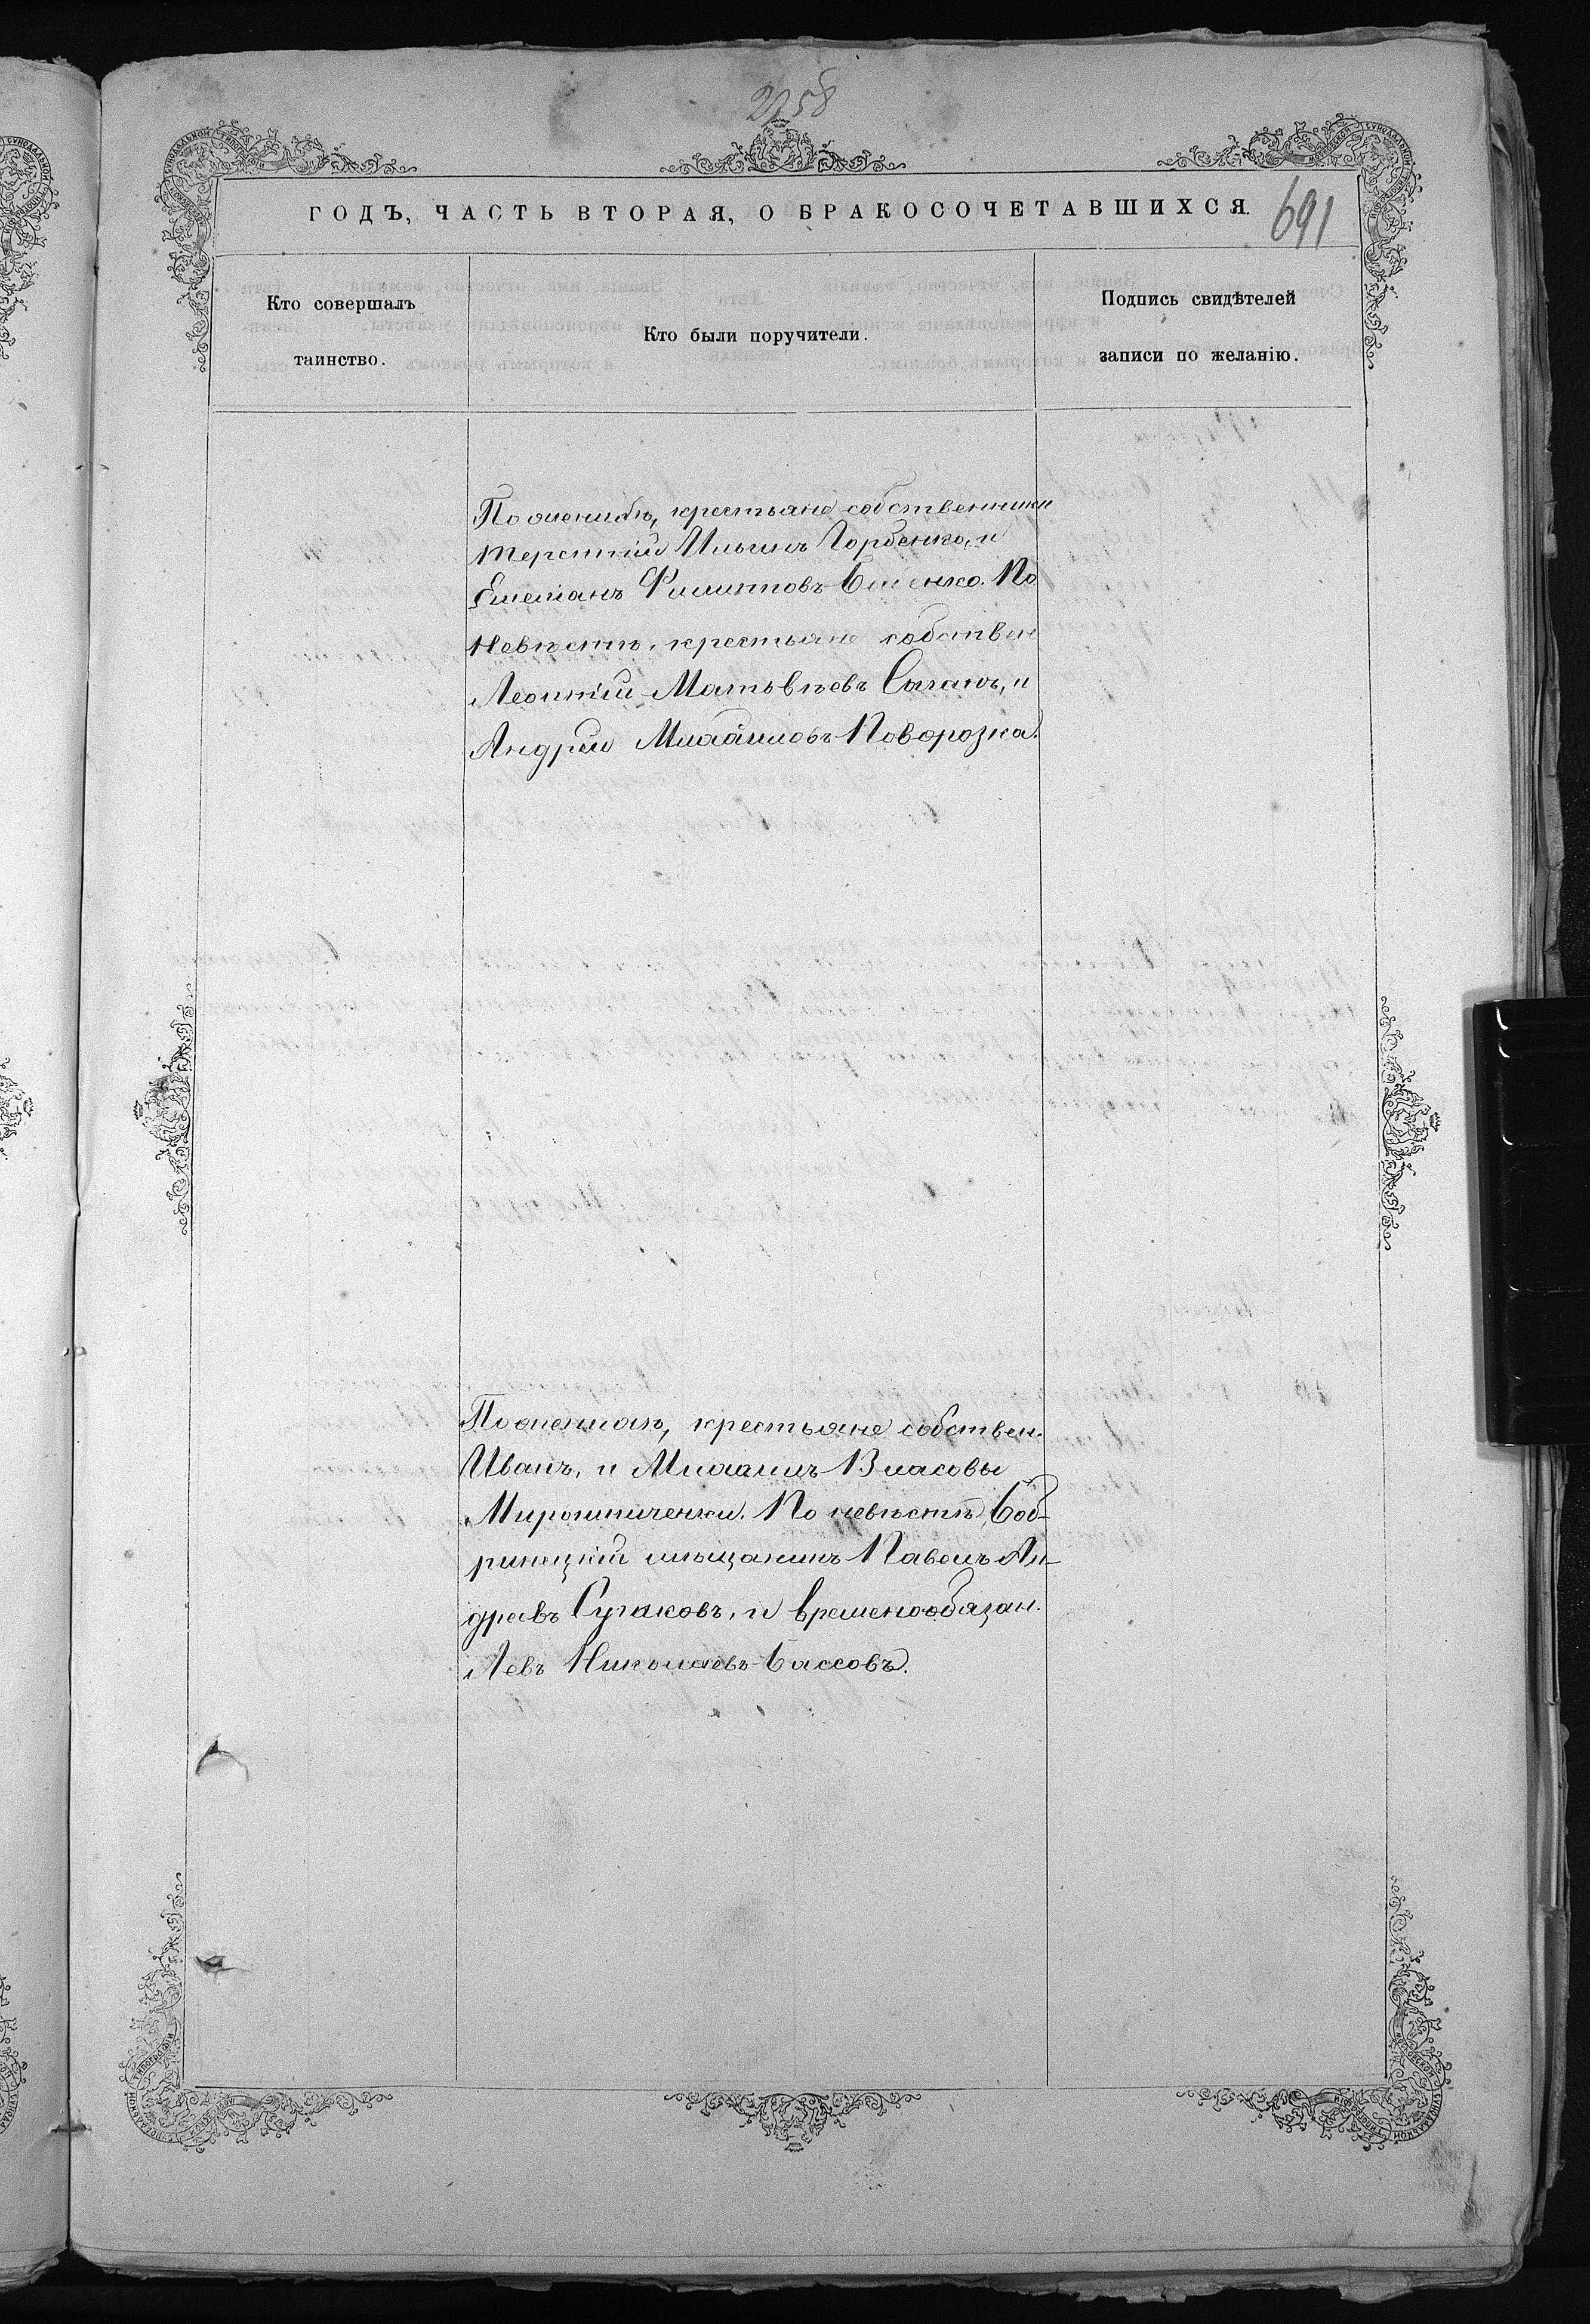 2258
ГОДЪ, ЧАСТЬ ВТОРАЯ, О БРАКОСОЧЕТАВШИХСЯ.
691
Кто совершалъ
таинство.
Кто были поручители.
Подпись свидѣтелей
записи по желанію.
По женихѣ, крестьяне собственники
Терентій Ильинъ Горбенко, и
Филиповъ По
невѣстѣ, крестьяне собствен
Леонтій Матвѣевъ Саганъ, и
Андрей Михайловъ Поворозка.
По женихѣ, крестьяне собствен.
Иванъ, и Михаилъ Власовы
Мирошниченки. По невѣстѣ, Боб-
ринецкій мѣщанинъ Павелъ Ан-
древъ Сугаковъ, и временнообязан.
Левъ Николаевъ Бассовъ.